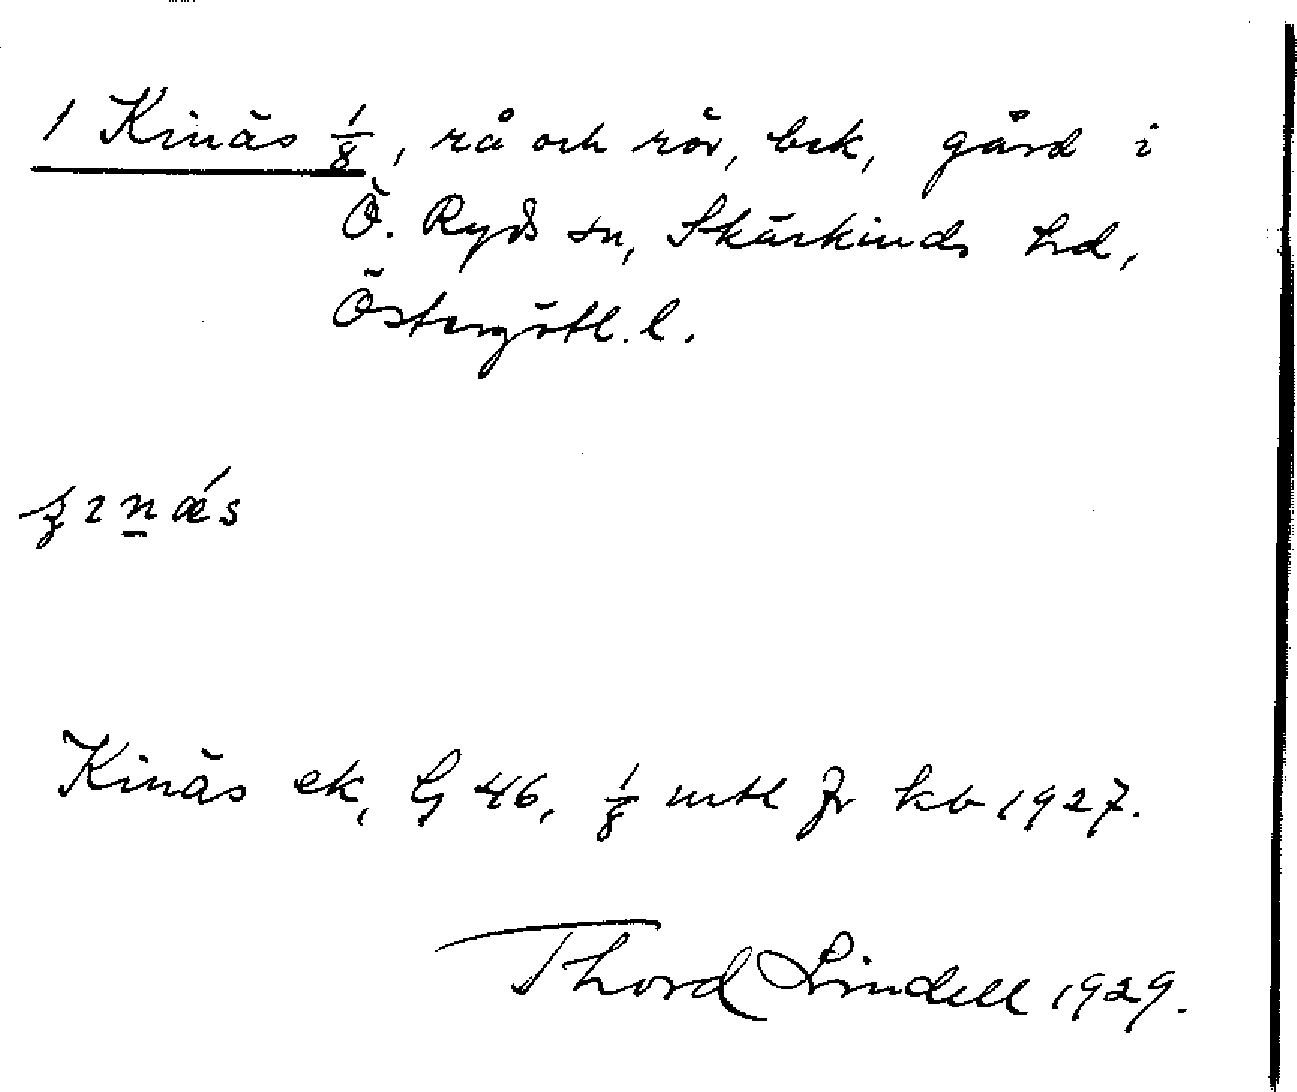 1 Kinäs 1/8, rå och rör, bek, gård i
Ö. Ryds sn, Skärkinds hd,
Östergötl. l.
Kinäs ek, G 46, 1/8 mtl fr kb 1927.
Thord Lindell 1929.